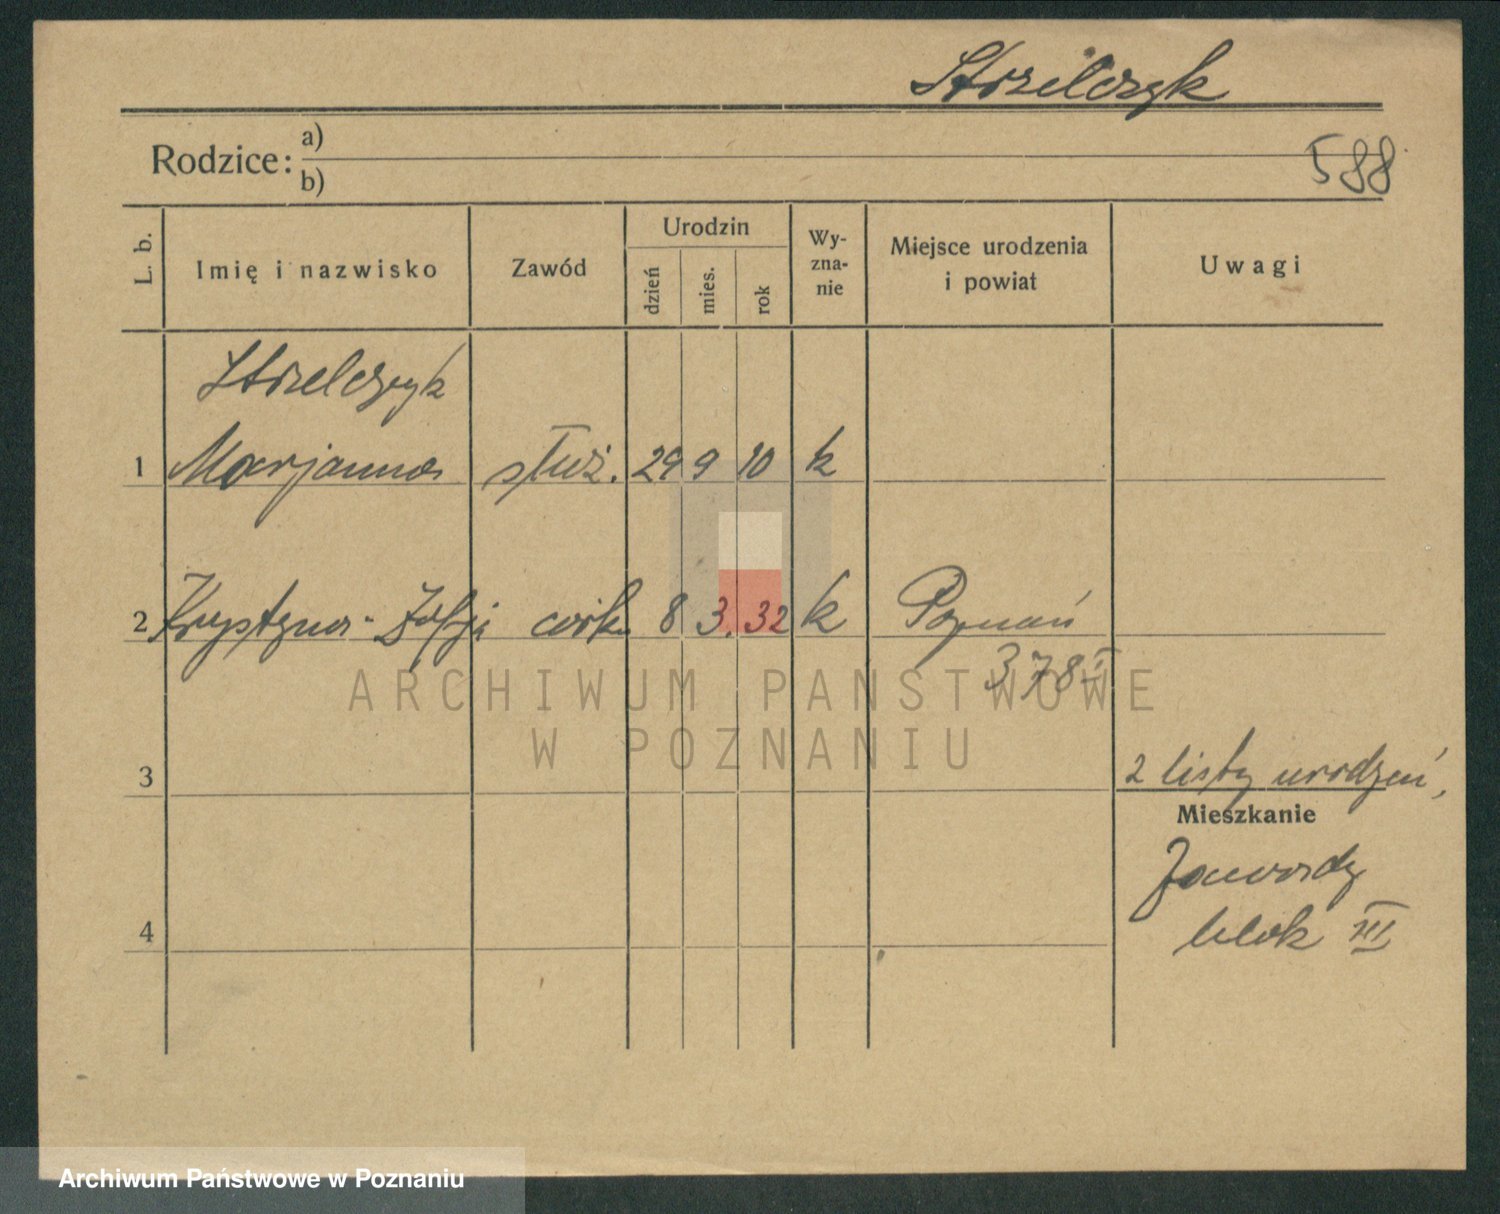 Strzelczyk
Rodzice: a)
b)
588
L. b.
Imię i nazwisko
Zawód
Urodzin
dzień
mies.
rok
Wy-
zna-
nie
Miejsce urodzenia
i powiat
Uwagi
Strzelczyk
1 Marjanna służ. 29 9 10 k
2 Krystyna - Zofja córk. 8 3. 32 k Poznań
378 II
ARCHIWUM PAŃSTWOWE
W POZNANIU
3
2 listy urodzeń,
Mieszkanie
Zawady
blok III
4
Archiwum Państwowe w Poznaniu